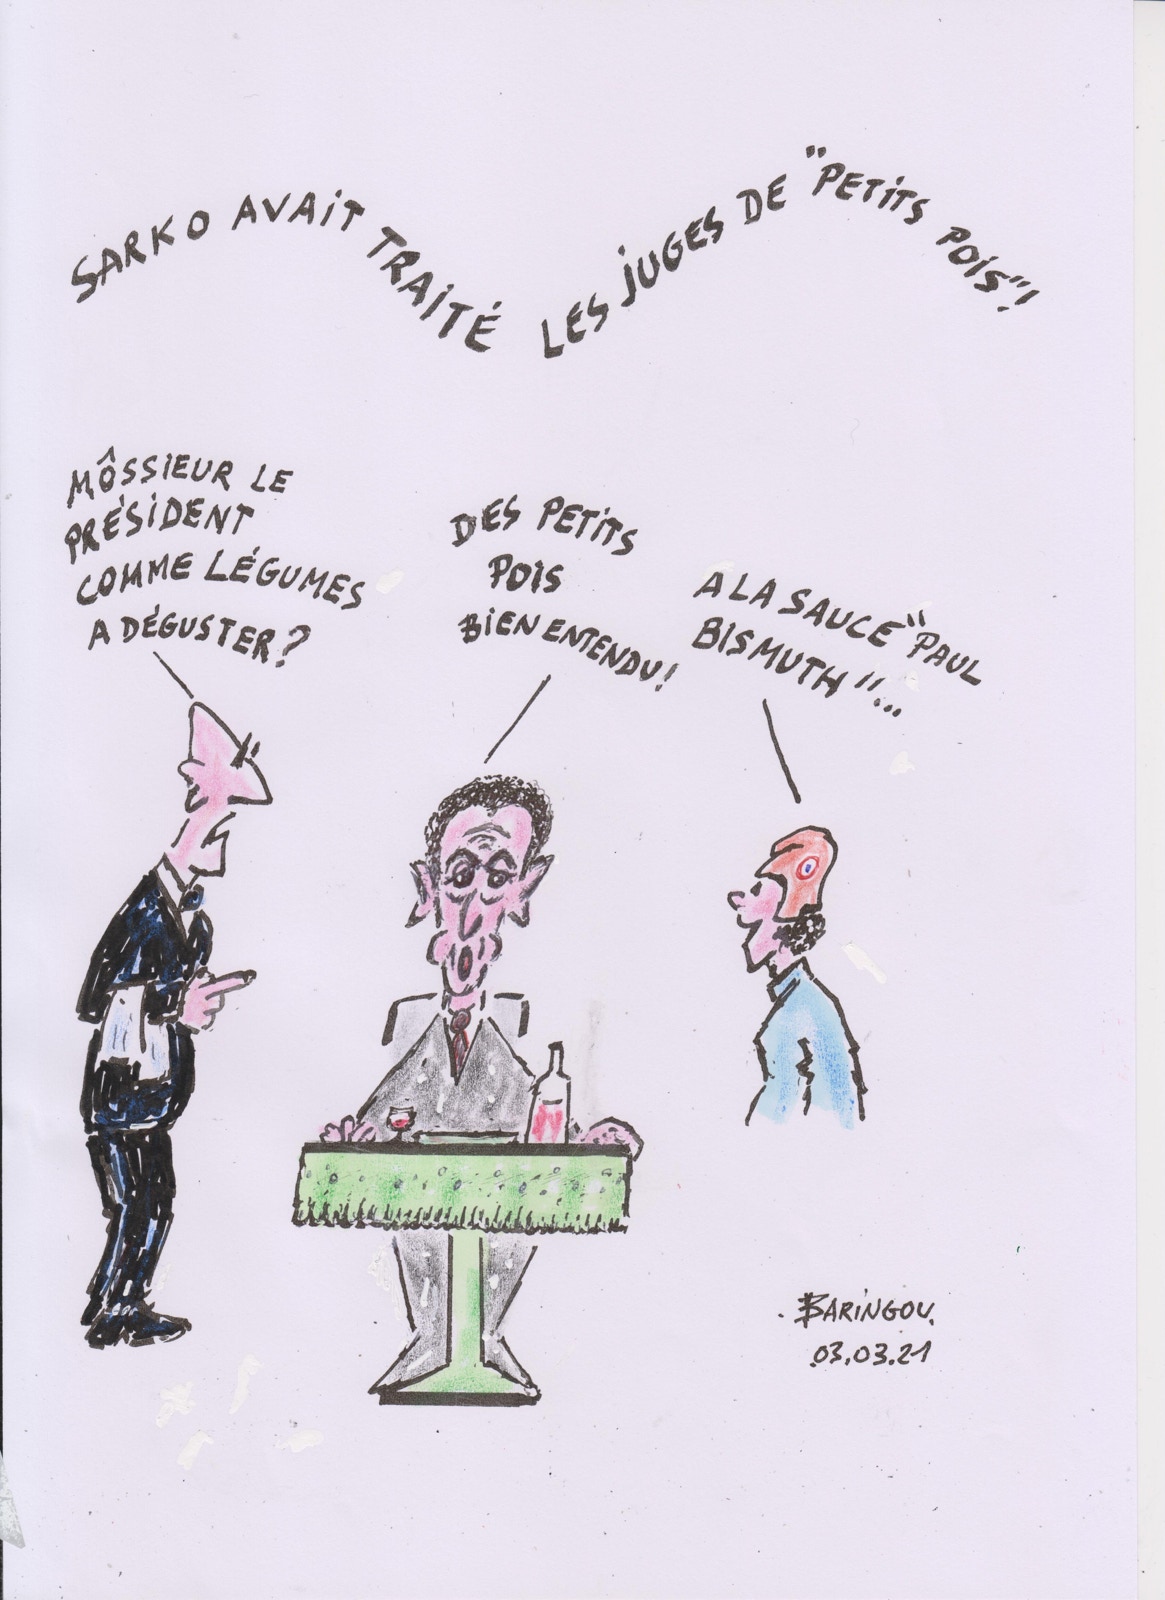 SARKO AVAIT TRAITÉ LES JUGES DE "PETITS POIS"!
MÔSSIEUR LE
PRÉSIDENT
COMME LÉGUMES
A DÉGUSTER?
DES PETITS
POIS
BIEN ENTENDU!
A LA SAUCE "PAUL
BISMUTH"...
BARINGOU.
03.03.21